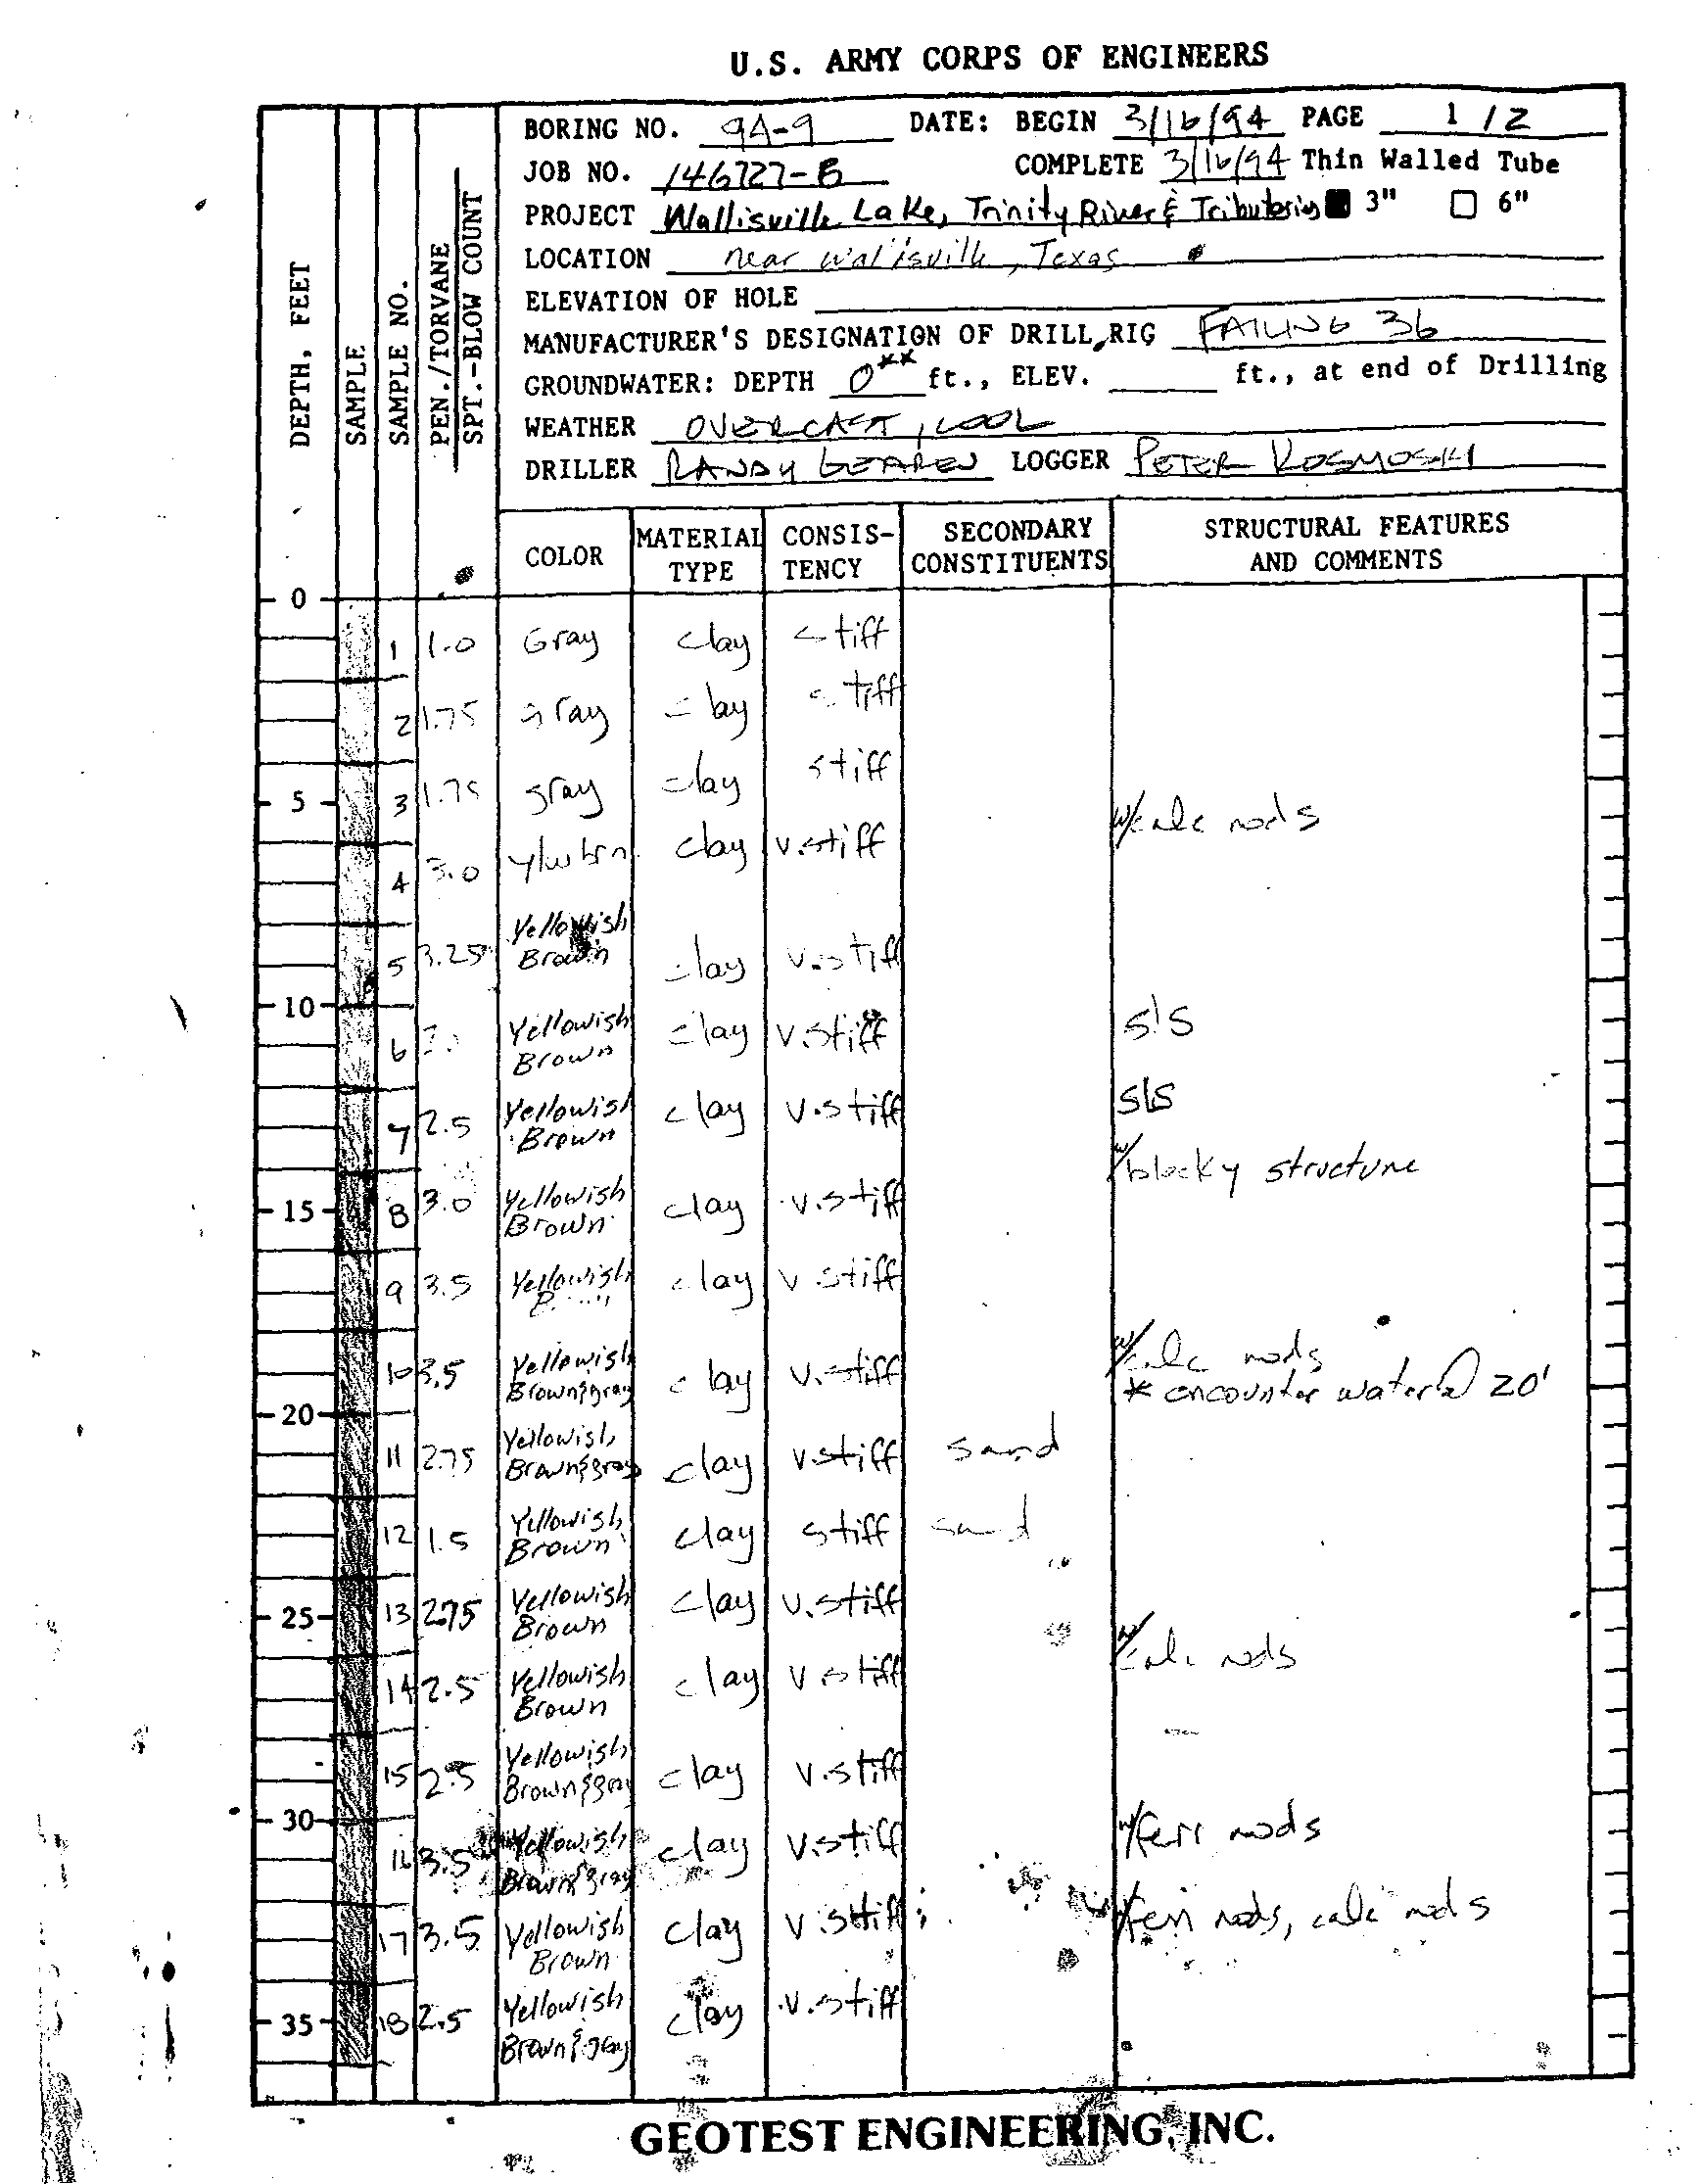 U.S. ARMY CORPS OF ENGINEERS
BORING NO. 94-9 DATE: BEGIN 3/16/94 PAGE 1 / 2
JOB NO. 146727-B COMPLETE 3/16/94 Thin Walled Tube
PROJECT Wallisville Lake, Trinity River & Tributaries 3" 6"
LOCATION near Wallisville, Texas
ELEVATION OF HOLE
MANUFACTURER'S DESIGNATION OF DRILL RIG FAILING 36
GROUNDWATER: DEPTH 0** ft., ELEV. ft., at end of Drilling
WEATHER OVERCAST, COOL
DRILLER RANDY GEAREN LOGGER PETER KOSMOSKI
DEPTH, FEET
SAMPLE
SAMPLE NO.
PEN./TORVANE
SPT.-BLOW COUNT
COLOR MATERIAL TYPE CONSIS-TENCY SECONDARY CONSTITUENTS STRUCTURAL FEATURES AND COMMENTS
0
1 1.0 Gray clay stiff
2 1.75 gray clay stiff
5 3 1.75 gray clay stiff w/calc nods
4 3.0 ylw brn clay v.stiff
5 3.25 Yellowish Brown clay v.stiff
10
6 Yellowish Brown clay v.stiff sls
7 2.5 Yellowish Brown clay v.stiff sls
w/blocky structure
15 8 3.0 Yellowish Brown clay v.stiff
9 3.5 Yellowish clay v stiff
10 3.5 Yellowish Brown & gray clay v.stiff w/calc nods
* encounter water @ 20'
20
11 2.75 Yellowish Brown & gray clay v.stiff sand
12 1.5 Yellowish Brown clay stiff sand
25 13 2.75 Yellowish Brown clay v.stiff
14 2.5 Yellowish Brown clay v stiff w/calc nods
15 2.5 Yellowish Brown & gray clay v.stiff
30
16 3.5 Yellowish Brown & gray clay v.stiff w/ferr nods
17 3.5 Yellowish Brown clay v.stiff w/ferr nods, calc nods
35 18 2.5 Yellowish Brown & gray clay v.stiff
GEOTEST ENGINEERING, INC.